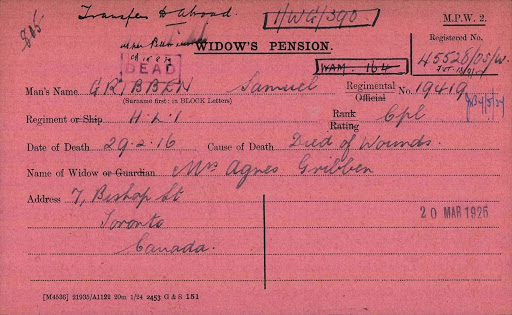 Transfer to Abroad. 1/WG/390
805
M.P.W. 2.
WIDOW'S PENSION.
Registered No.
45528/03/W.
DEAD
WAM. 164
Man's Name GRIBBEN Samuel Regimental Official No. 19419
(Surname first: in BLOCK Letters)
Regiment or Ship H.L.I Rank Rating Cpl
Date of Death 29.2.16 Cause of Death Died of Wounds.
Name of Widow or Guardian Mrs Agnes Gribben
Address 7, Bishop St
Toronto
Canada.
20 MAR 1926
[M4536] 21935/A1122 20m 1/24 2453 G & S 151